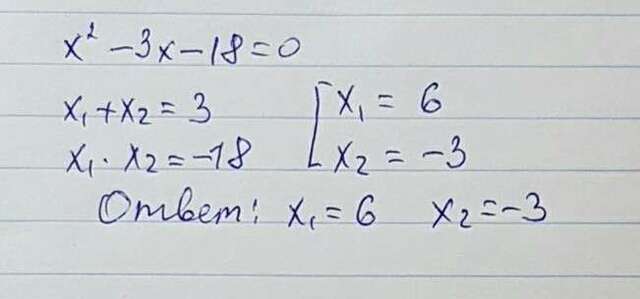 x² - 3x - 18 = 0
x₁ + x₂ = 3 [ x₁ = 6
x₁ · x₂ = -18 x₂ = -3
Ответ: x₁ = 6 x₂ = -3